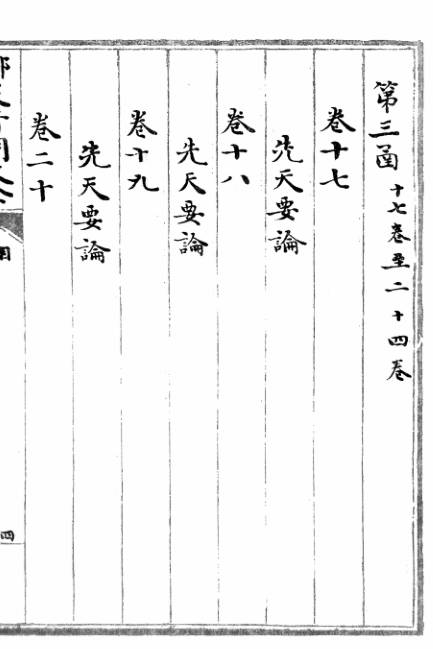 第三函 十七卷至二十四卷
卷十七
先天要論
卷十八
先天要論
卷十九
先天要論
卷二十
目
四